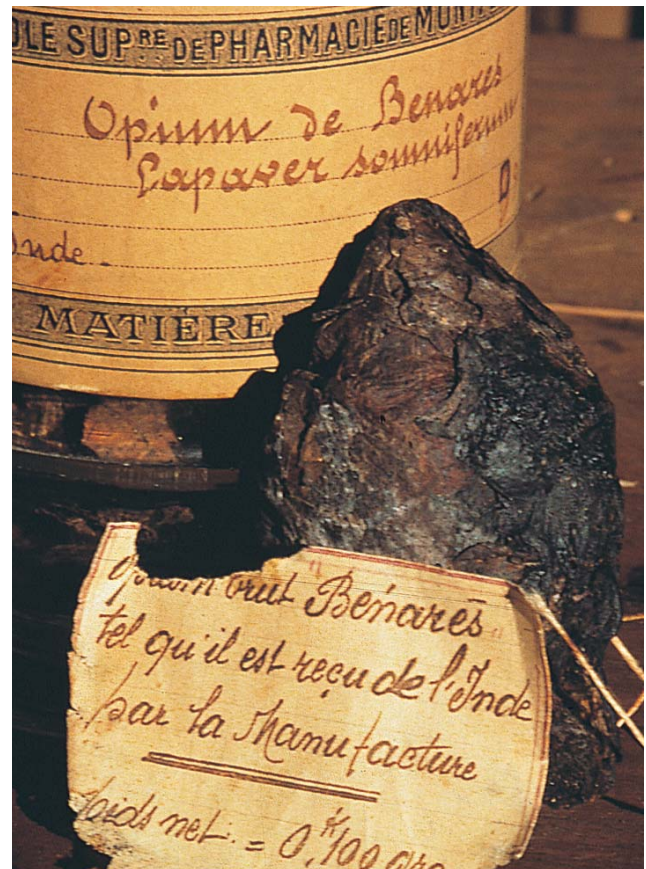 OLE SUP.RE DE PHARMACIE DE MON
Opium de Benares
Papaver somniferum
Inde.
MATIÈRE
opium brut "Bénarès"
tel qu'il est reçu de l'Inde
par la Manufacture
Poids net = 0,K100 gra